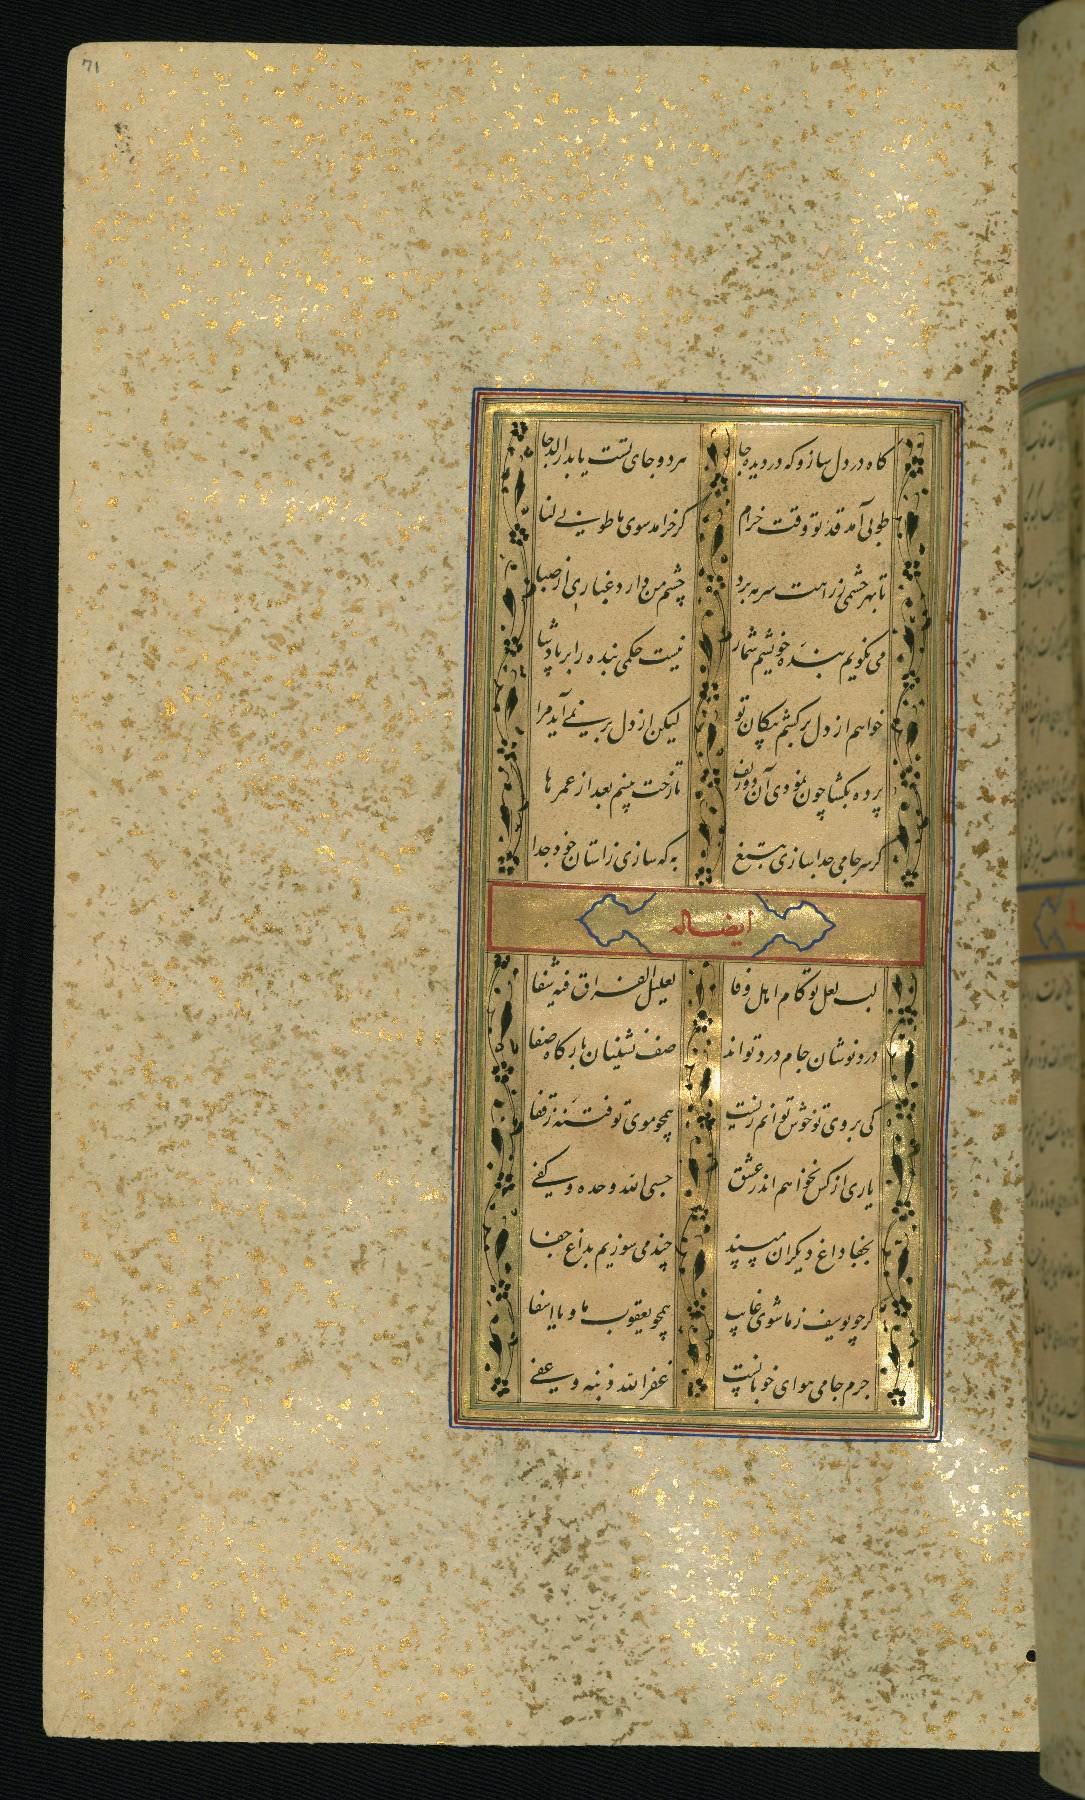 71
گاه در دل ساز و گه در دیده جا
هر دو جای تست یا بدر الدجا
طوبی آمد قد تو وقت خرام
گر خرامد سوی ما طوبی لنا
تا بهر چشمی ز راهت سرمه برد
چشم من دارد غباری از صبا
می نگویم بنده خویشم شمار
نیست حکمی بنده را بر پادشا
خواهم از دل برکشم پیکان تو
لیکن از دل بر نمی آید مرا
پرده بگشا چون نمودی آن دو زلف
تا رخت بینم بعد از عمرها
گر سر جامی جدا سازی بتیغ
به که سازی زاستان خود جدا
ایضا له
لب لعل تو کام اهل وفا
لعلیل الفراق فیه شفا
درد نوشان جام درد تواند
صف نشینان بارگاه صفا
کی بروی تو خوش توانم زیست
همچو موی تو فتنه ز قفا
یاری از کس نخواهم اندر عشق
حسبی الله وحده وکفی
بجفا داغ دیگران مپسند
چند می سوزیم بداغ جفا
گر چو یوسف ز ما شوی غایب
همچو یعقوب ما و یا اسفا
جرم جامی هوای خوبانست
غفر الله ذنبه وعفی